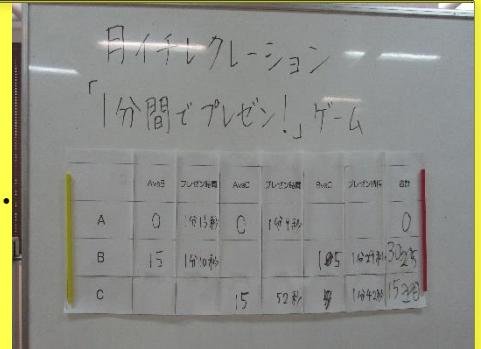 月イチレクレーション
「1分間でプレゼン!」ゲーム
AvsB プレゼン時間 AvsC プレゼン時間 BvsC プレゼン時間 合計
A 0 1分13秒 0 1分9秒 0
B 15 1分10秒 1分29秒 30
C 15 52秒 1分42秒 15